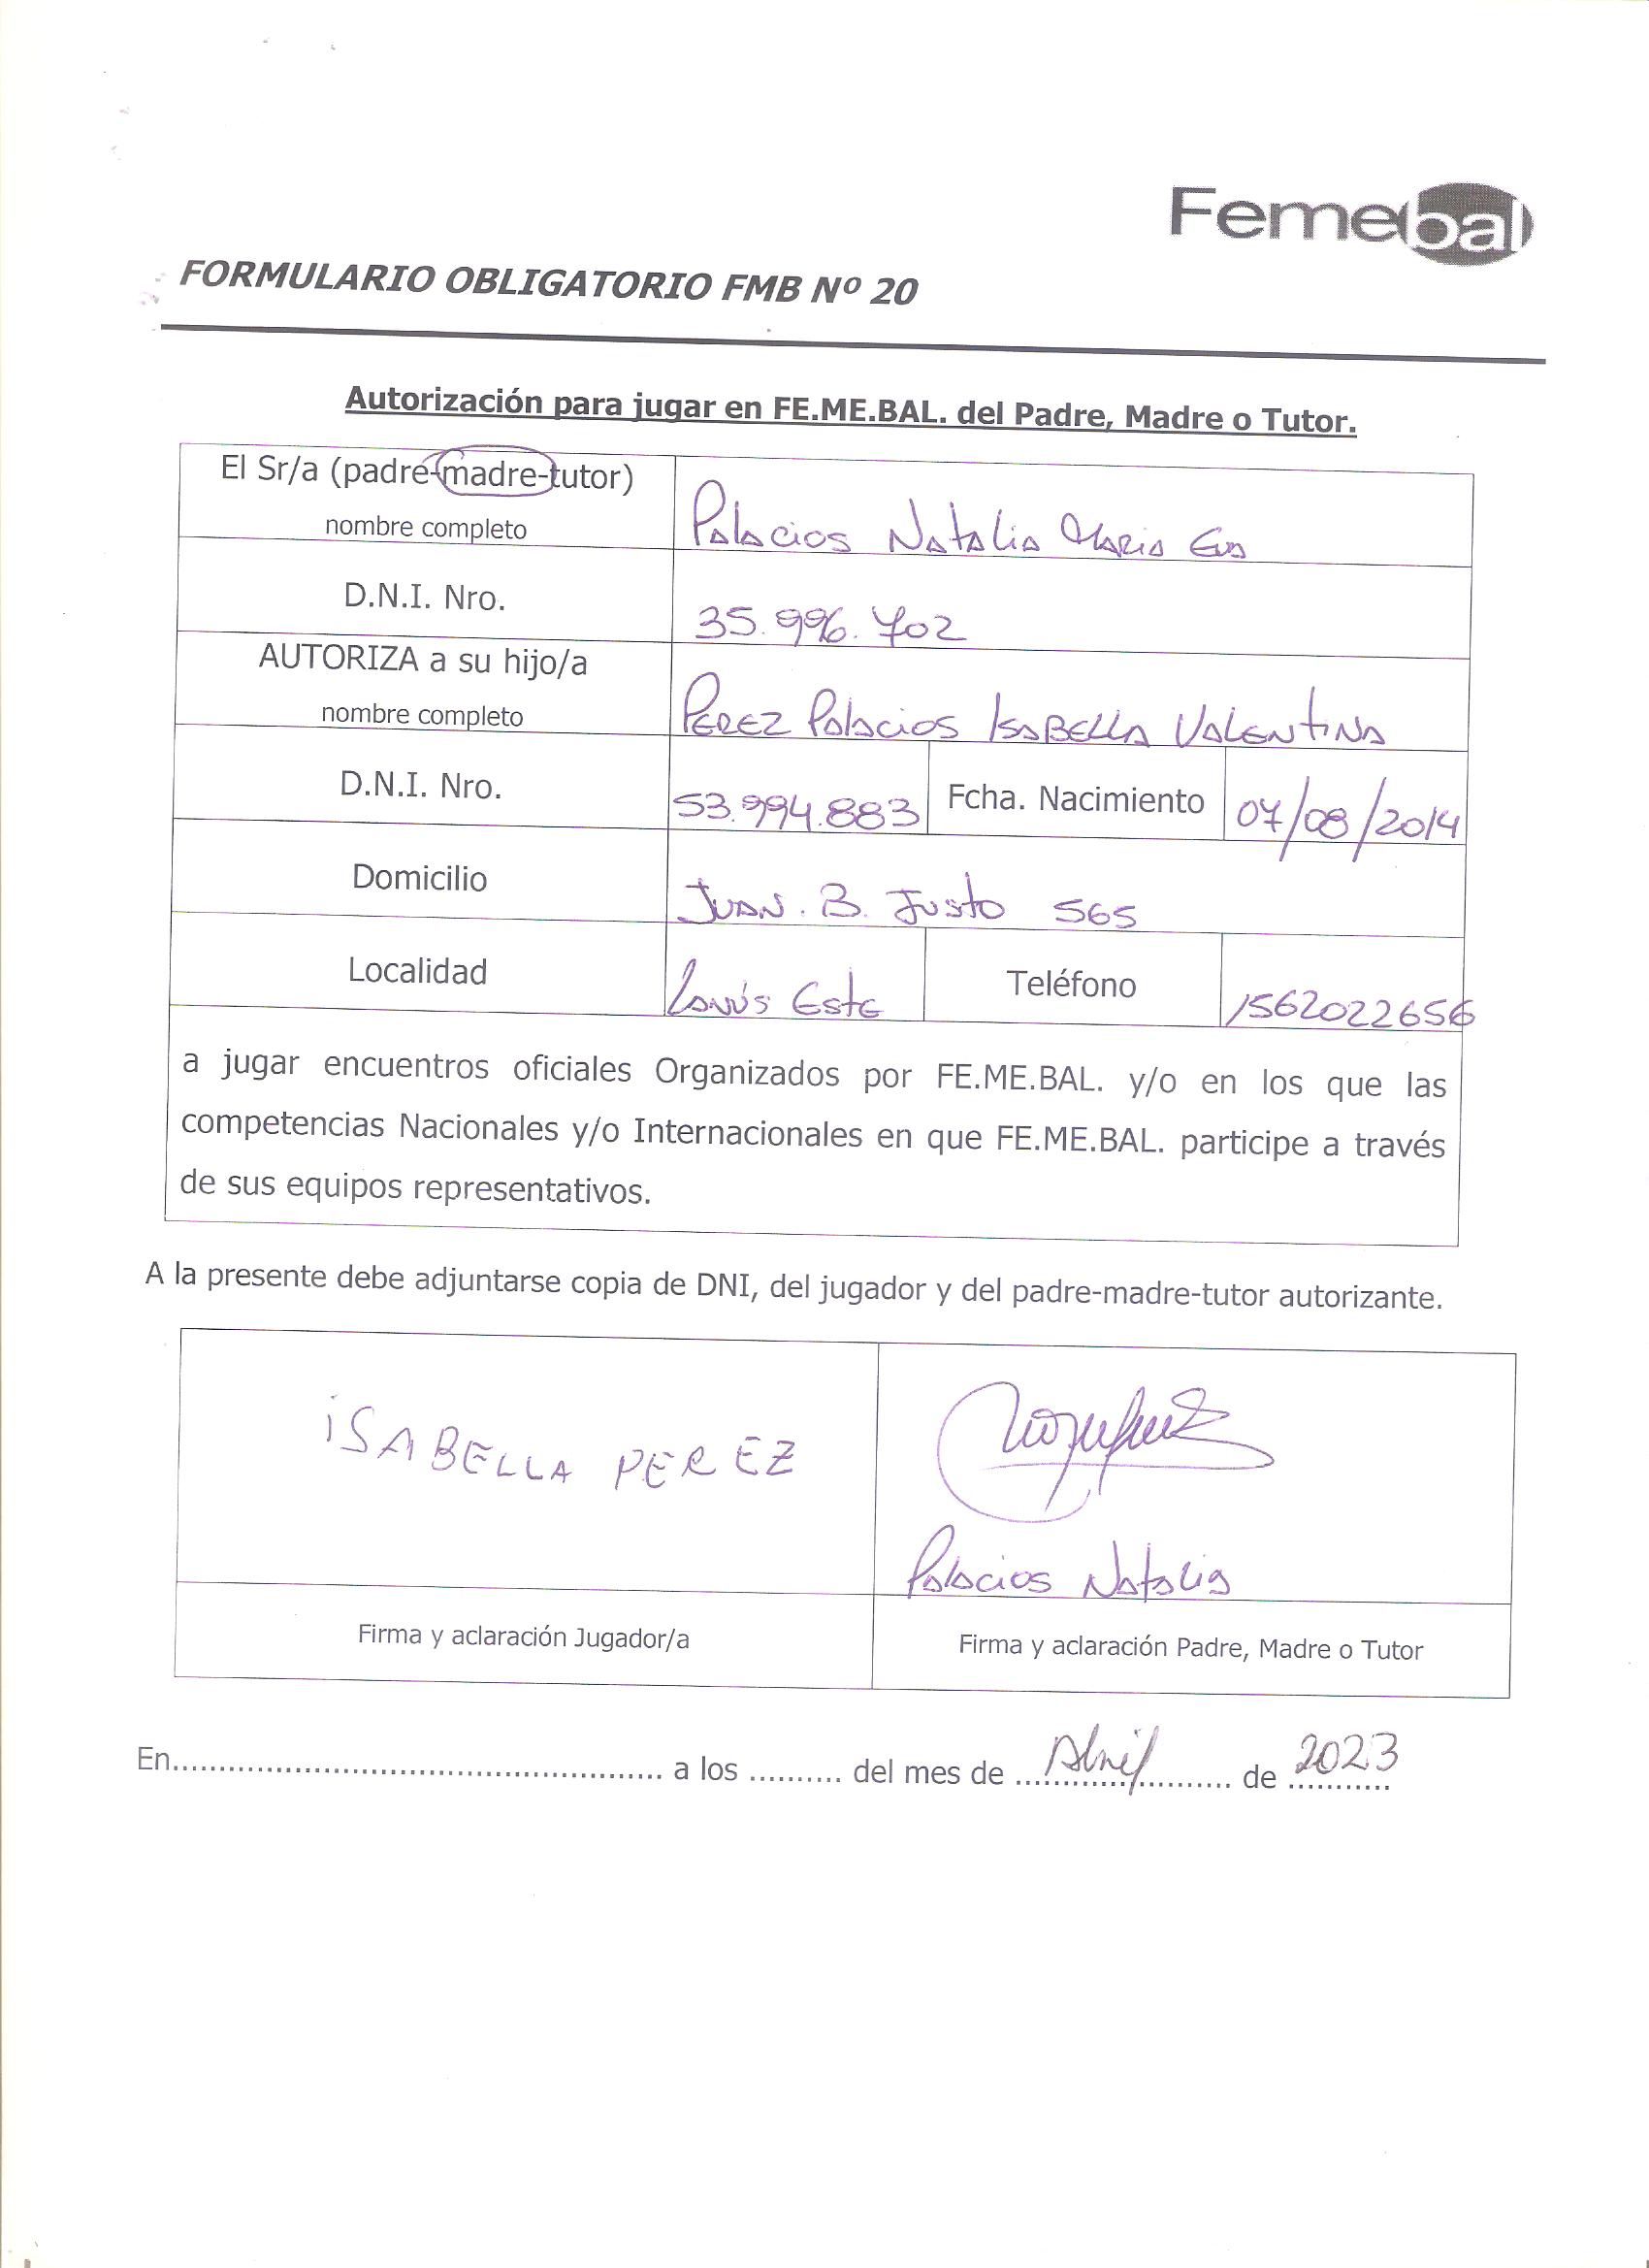 Femebal
FORMULARIO OBLIGATORIO FMB Nº 20
Autorización para jugar en FE.ME.BAL. del Padre, Madre o Tutor.
El Sr/a (padre-madre-tutor)
nombre completo
Palacios Natalia Maria Eva
D.N.I. Nro.
35.996.702
AUTORIZA a su hijo/a
nombre completo
PEREZ Palacios ISABELLA VALENTINA
D.N.I. Nro.
53.994.883
Fcha. Nacimiento
07/08/2014
Domicilio
JUAN. B. JUsto 565
Localidad
Lanús Este
Teléfono
1562022656
a jugar encuentros oficiales Organizados por FE.ME.BAL. y/o en los que las
competencias Nacionales y/o Internacionales en que FE.ME.BAL. participe a través
de sus equipos representativos.
A la presente debe adjuntarse copia de DNI, del jugador y del padre-madre-tutor autorizante.
iSABELLA PEREZ
Palacios Natalia
Firma y aclaración Jugador/a
Firma y aclaración Padre, Madre o Tutor
En...................................................... a los .......... del mes de Abril de 2023